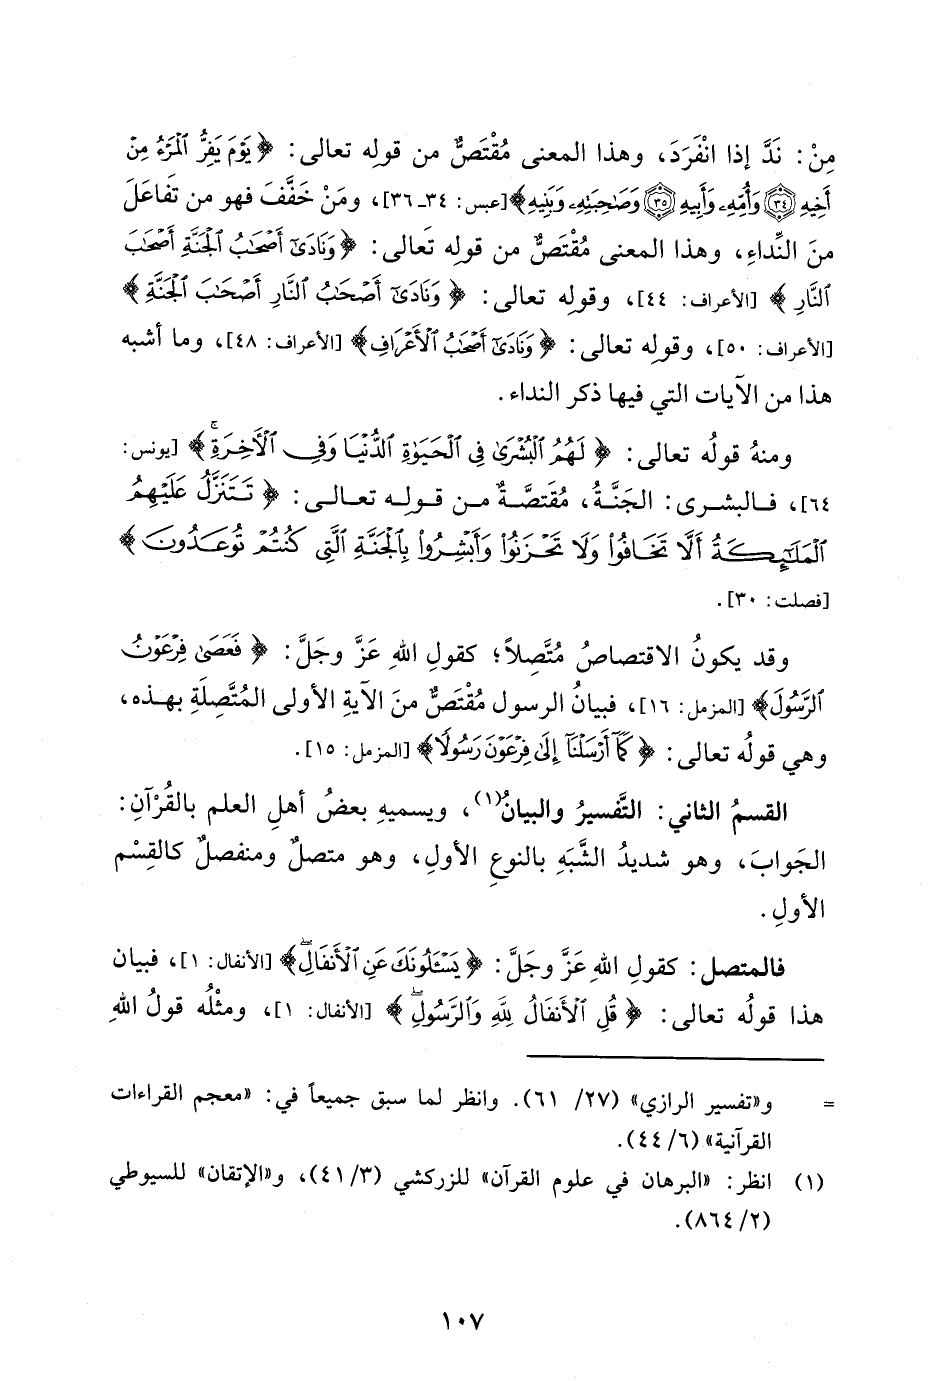 مِنْ: نَدَّ إذا انْفَرَدَ، وهذا المعنى مُقْتَصٌّ من قولِه تعالى: ﴿يَوْمَ يَفِرُّ ٱلْمَرْءُ مِنْ
أَخِيهِ ٣٤ وَأُمِّهِۦ وَأَبِيهِ ٣٥ وَصَٰحِبَتِهِۦ وَبَنِيهِ﴾ [عبس: ٣٤ـ ٣٦]، ومَنْ خَفَّفَ فهو من تَفاعَلَ
منَ النِّداءِ، وهذا المعنى مُقْتَصٌّ من قولِه تَعالى: ﴿وَنَادَىٰٓ أَصْحَٰبُ ٱلْجَنَّةِ أَصْحَٰبَ
ٱلنَّارِ﴾ [الأعراف: ٤٤]، وقولِه تعالى: ﴿وَنَادَىٰٓ أَصْحَٰبُ ٱلنَّارِ أَصْحَٰبَ ٱلْجَنَّةِ﴾
[الأعراف: ٥٠]، وقولِه تعالى: ﴿وَنَادَىٰٓ أَصْحَٰبُ ٱلْأَعْرَافِ﴾ [الأعراف: ٤٨]، وما أشبه
هذا من الآيات التي فيها ذكر النداء.
ومنهُ قولُه تعالى: ﴿لَهُمُ ٱلْبُشْرَىٰ فِى ٱلْحَيَوٰةِ ٱلدُّنْيَا وَفِى ٱلْأَخِرَةِۚ﴾ [يونس:
٦٤]، فالبشرى: الجَنَّةُ، مُقتَصَّةٌ من قولِه تعالى: ﴿تَتَنَزَّلُ عَلَيْهِمُ
ٱلْمَلَٰٓئِكَةُ أَلَّا تَخَافُوا۟ وَلَا تَحْزَنُوا۟ وَأَبْشِرُوا۟ بِٱلْجَنَّةِ ٱلَّتِى كُنتُمْ تُوعَدُونَ﴾
[فصلت: ٣٠].
وقد يكونُ الاقتصاصُ مُتَّصِلاً؛ كقولِ اللهِ عَزَّ وجَلَّ: ﴿فَعَصَىٰ فِرْعَوْنُ
ٱلرَّسُولَ﴾ [المزمل: ١٦]، فبيانُ الرسول مُقْتَصٌّ منَ الآيةِ الأولى المُتَّصِلَةِ بهذه،
وهي قولُه تعالى: ﴿كَمَآ أَرْسَلْنَآ إِلَىٰ فِرْعَوْنَ رَسُولًا﴾ [المزمل: ١٥].
القسمُ الثاني: التَّفسيرُ والبيانُ(١)، ويسميهِ بعضُ أهلِ العلم بالقُرْآنِ:
الجَوابَ، وهو شديدُ الشَّبَهِ بالنوعِ الأولِ، وهو متصلٌ ومنفصلٌ كالقِسْم
الأولِ.
فالمتصل: كقولِ اللهِ عَزَّ وجَلَّ: ﴿يَسْـَٔلُونَكَ عَنِ ٱلْأَنفَالِۖ﴾ [الأنفال: ١]، فبيان
هذا قولُه تعالى: ﴿قُلِ ٱلْأَنفَالُ لِلَّهِ وَٱلرَّسُولِۖ﴾ [الأنفال: ١]، ومثْلُه قولُ اللهِ
= و«تفسير الرازي» (٢٧/ ٦١). وانظر لما سبق جميعاً في: «معجم القراءات
القرآنية» (٦/ ٤٤).
(١) انظر: «البرهان في علوم القرآن» للزركشي (٣/ ٤١)، و«الإتقان» للسيوطي
(٢/ ٨٦٤).
١٠٧